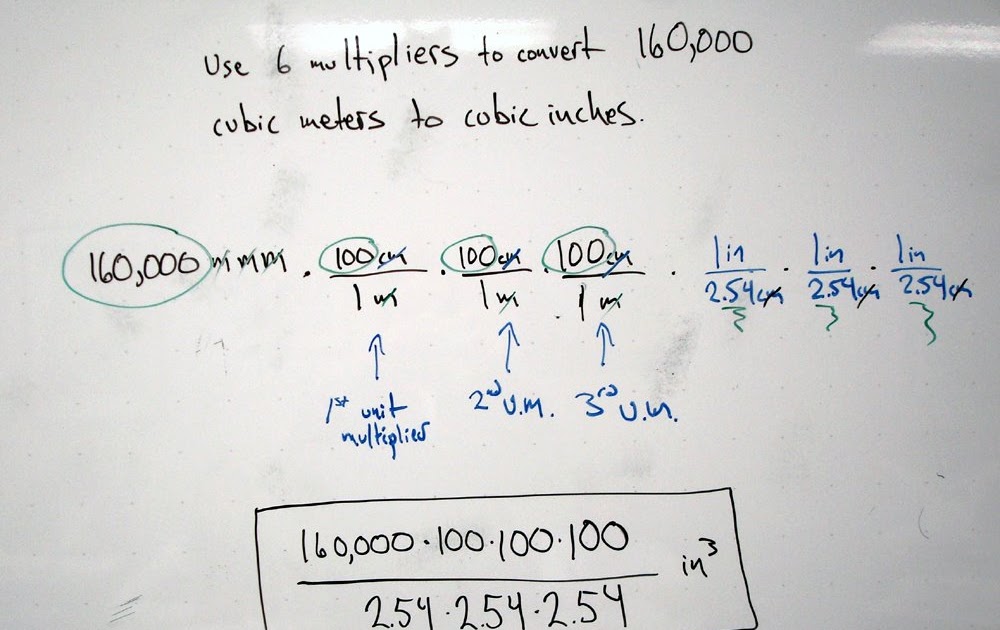 Use 6 multipliers to convert 160,000
cubic meters to cubic inches.
160,000 m m m · 100cm / 1 m · 100cm / 1 m · 100cm / 1 m · 1in / 2.54cm · 1in / 2.54cm · 1in / 2.54cm
1st unit multiplier
2nd U.M.
3rd U.M.
160,000·100·100·100
in³
2.54·2.54·2.54